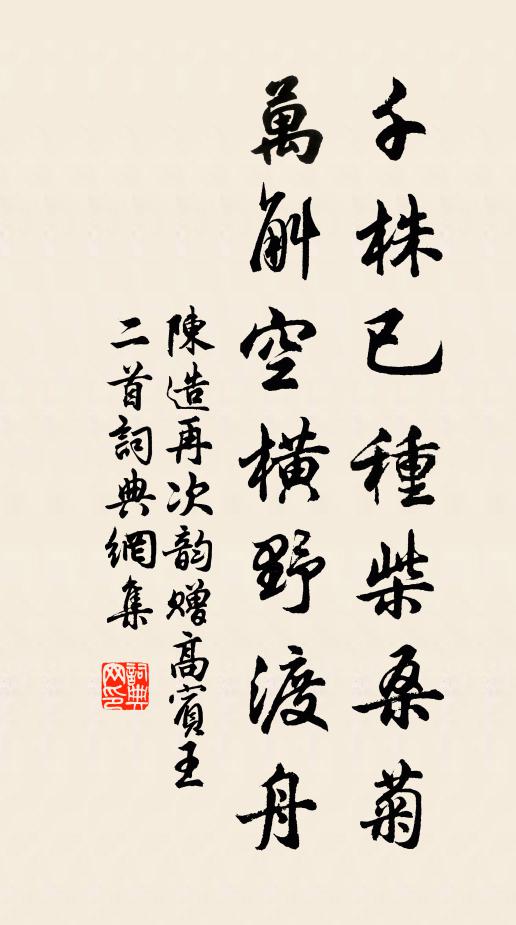 千株已種柴桑菊
萬斛空橫野渡舟
陳造再次韵贈高賓王
二首詞典網集
詞典
网印